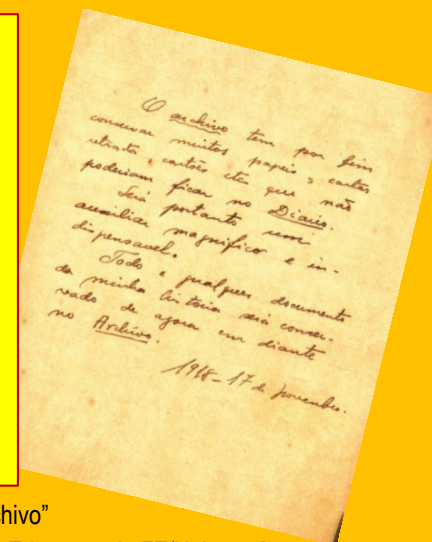 O archivo tem por fim
conservar muitos papeis e cartas
retratos cartões etc que não
poderiam ficar no Diario.
Será portanto um
auxiliar magnifico e in-
dispensavel.
Todo e qualquer documento
da minha historia será conser-
vado de agora em diante
no Archivo.
1918-17 de novembro.
chivo"